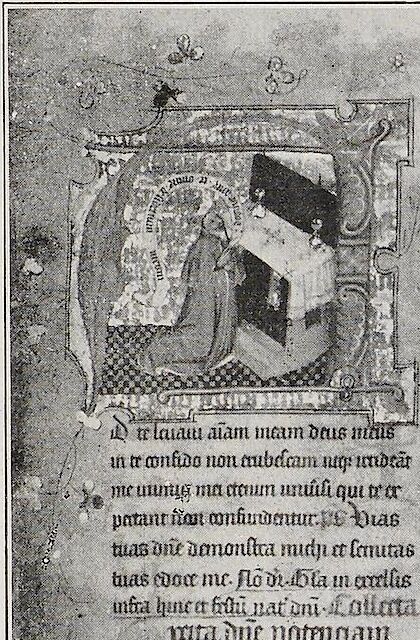 D te leuaui aīam meam deus meus
in te confido non erubescam neqʒ irrideāt
me inimici mei etenim uniūsi qui te ex
pectant non confundentur. p̄s Vias
tuas dn̄e demonstra michi et semitas
tuas edoce me. Nō dr̄. Gl̄a in excelsis
infra hinc et festū nat̄ dn̄i. Collecta
xcita dn̄e potenciam